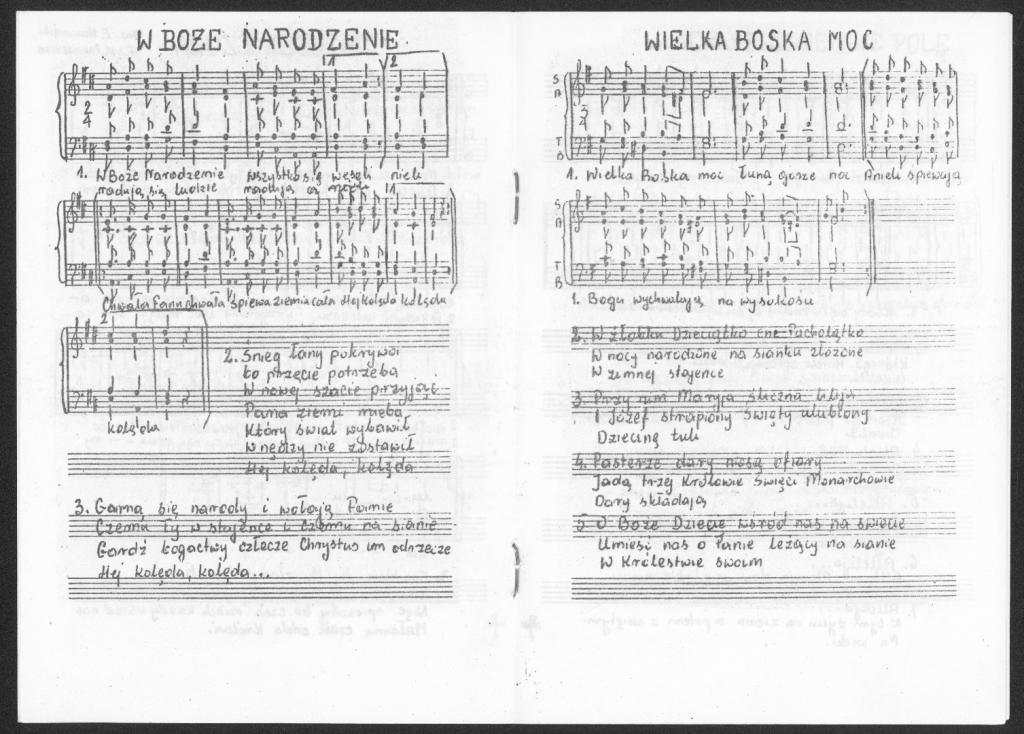 W BOŻE NARODZENIE
1. W Boże Narodzenie wszystko się weseli nieli
radują się ludzie radują
Chwała Panu chwała śpiewa ziemia cała Hej kolęda kolęda
kolęda
2. Śnieg łany pokrywa
bo przecie potrzeba
W nowej szacie przyjąć
Pana ziemi nieba
Który świat wybawił
W nędzy nie zostawił
Hej kolęda, kolęda
3. Garną się narody i wołają Panie
Czemu Ty w stajence i czemu na sianie
Gardź bogactwy człecze Chrystus im odrzecze
Hej kolęda, kolęda...
WIELKA BOSKA MOC
S
A
T
B
1. Wielka Boska moc łuną gorze noc Anieli śpiewają
S
A
T
B
1. Bogu wychwalają na wysokości
2. W żłobku Dzieciątko cne Pacholątko
W nocy narodzone na sianku złożone
W zimnej stajence
3. Przy nim Maryja śliczna lilija
I Józef strapiony święty ulubiony
Dziecinę tuli
4. Pasterze dary niosą ofiary
Jadą trzej Królowie święci Monarchowie
Dary składają
5 O Boże Dziecię wśród nas na świecie
Umieść nas o Panie leżący na sianie
W Królestwie swoim